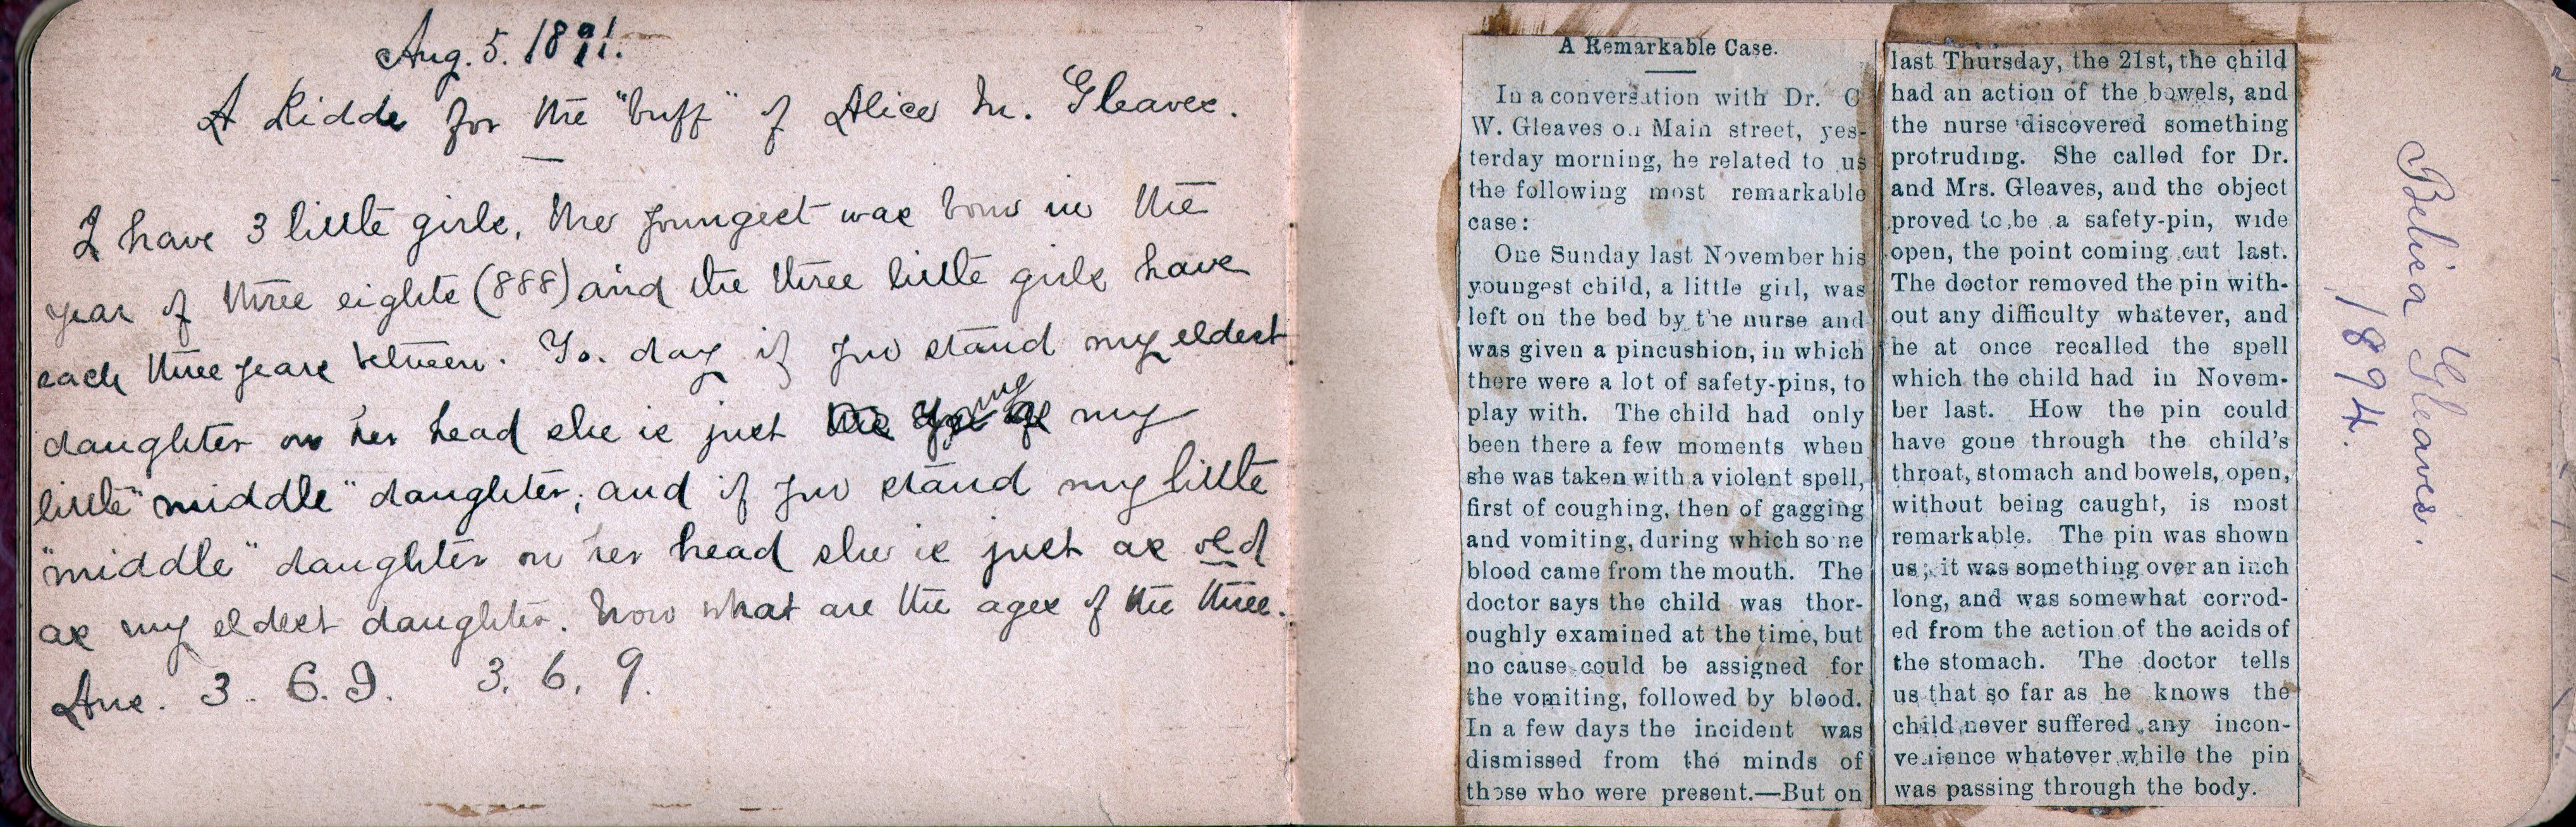 Aug. 5. 1891.
A Riddle for the "buff" of Alice M. Gleaves.
I have 3 little girls, the youngest was born in the
year of three eights (888) and the three little girls have
each three years between. To. day if you stand my eldest
daughter on her head she is just my
little "middle" daughter; and if you stand my little
"middle" daughter on her head she is just as old
as my eldest daughter. Now what are the ages of the three.
Ans. 3. 6. 9. 3. 6. 9.
A Remarkable Case.
In a conversation with Dr. C
W. Gleaves on Main street, yes-
terday morning, he related to us
the following most remarkable
case:
One Sunday last November his
youngest child, a little girl, was
left on the bed by the nurse and
was given a pincushion, in which
there were a lot of safety-pins, to
play with. The child had only
been there a few moments when
she was taken with a violent spell,
first of coughing, then of gagging
and vomiting, during which some
blood came from the mouth. The
doctor says the child was thor-
oughly examined at the time, but
no cause could be assigned for
the vomiting, followed by blood.
In a few days the incident was
dismissed from the minds of
those who were present.—But on
last Thursday, the 21st, the child
had an action of the bowels, and
the nurse discovered something
protruding. She called for Dr.
and Mrs. Gleaves, and the object
proved to be a safety-pin, wide
open, the point coming out last.
The doctor removed the pin with-
out any difficulty whatever, and
he at once recalled the spell
which the child had in Novem-
ber last. How the pin could
have gone through the child's
throat, stomach and bowels, open,
without being caught, is most
remarkable. The pin was shown
us; it was something over an inch
long, and was somewhat corrod-
ed from the action of the acids of
the stomach. The doctor tells
us that so far as he knows the
child never suffered any incon-
venience whatever while the pin
was passing through the body.
Belva Gleaves.
1894.